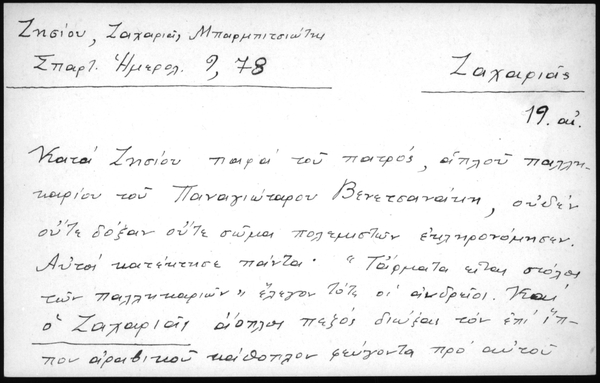 Ζησίου, Ζαχαριᾶς Μπαρμπιτσιώτης
Σπαρτ. Ἡμερολ. 9, 78
Ζαχαριᾶς
19. αἰ.
Κατά Ζησίου παρά τοῦ πατρός, ἁπλοῦ παλλη-
καρίου τοῦ Παναγιώταρου Βενετσανάκη, οὐδέν
οὔτε δόξαν οὔτε σῶμα πολεμιστῶν ἐκληρονόμησεν.
Αὐτός κατέκτησε πάντα· "Τἄρματα εἶναι στόλοι
τῶν παλληκαριῶν" ἔλεγον τότε οἱ ἀνδρεῖοι. Καί
ὁ Ζαχαριᾶς ἄοπλος πεζός διώξας τόν ἐπί ἵπ-
που ἀραβικοῦ κάθοπλον φεύγοντα πρό αὐτοῦ